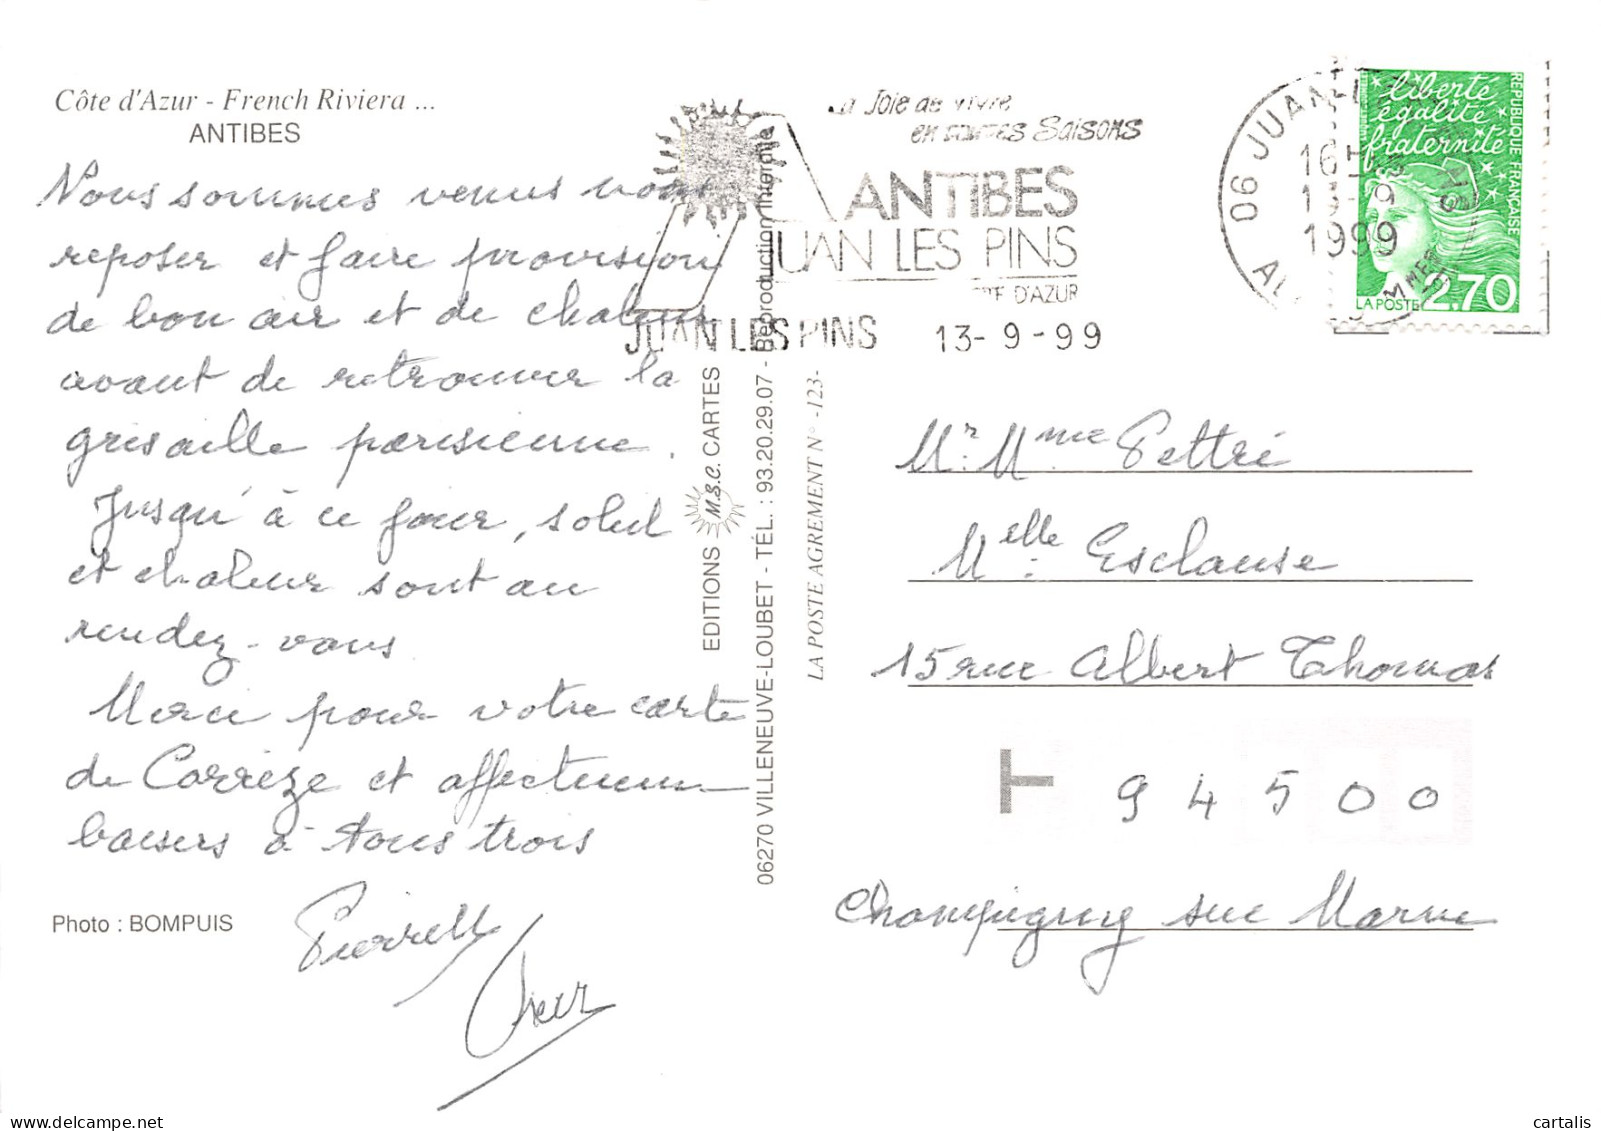 Côte d'Azur - French Riviera ...
ANTIBES
Nous sommes venus nous
reposer et faire provision
de bon air et de chaleur
avant de retrouver la
grisaille parisienne.
Jusqu'à ce jour, soleil
et chaleur sont au
rendez-vous
Merci pour votre carte
de Corrèze et affectueux
baisers à tous trois
Photo : BOMPUIS
EDITIONS M.S.C. CARTES
06270 VILLENEUVE-LOUBET - TÉL. : 93.20.29.07 - Reproduction interdite
LA POSTE AGREMENT N° -123-
la Joie de vivre
en toutes Saisons
ANTIBES
JUAN LES PINS
COTE D'AZUR
JUAN LES PINS 13-9-99
06 JUAN-LES-PINS
16H
13-9
1999
liberté
égalité
fraternité
REPUBLIQUE FRANÇAISE
LA POSTE 2,70
Mr. Mme Pettré
Melle Esclause
15 rue Albert Thomas
94500
Champigny sur Marne
cartalis